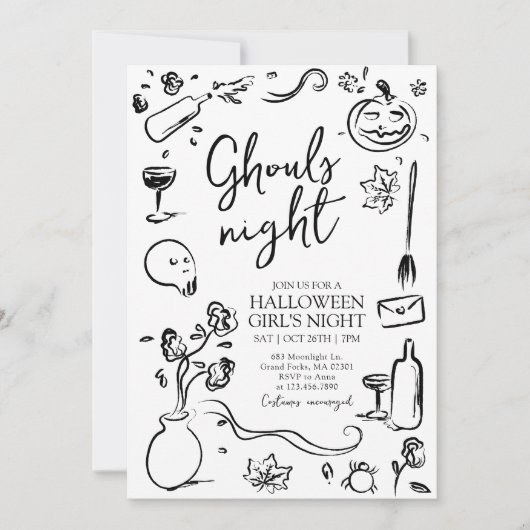 Ghouls
night
JOIN US FOR A
HALLOWEEN
GIRL'S NIGHT
SAT | OCT 26TH | 7PM
683 Moonlight Ln.
Grand Forks, MA 02301
RSVP to Anna
at 123.456.7890
Costumes encouraged